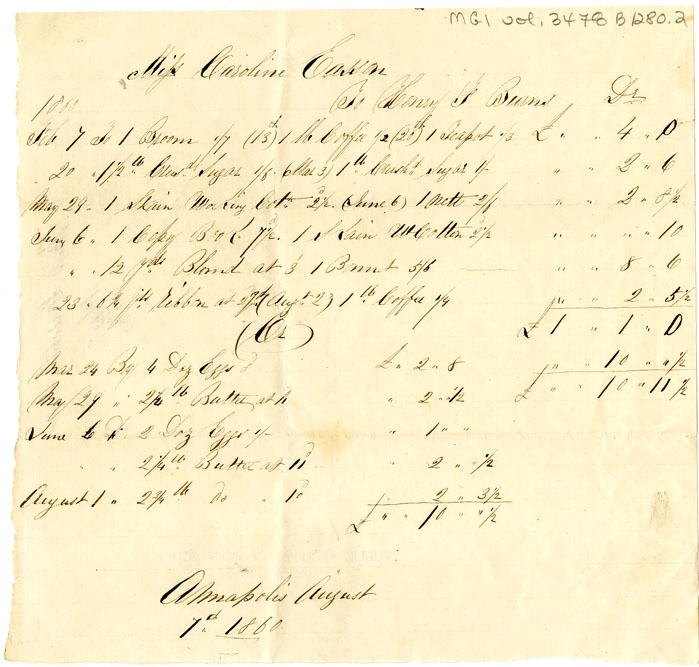 MG1 vol. 3478 B1280.2
Miss Caroline Easson
1860 To Henry F Burns Dr
Feb 7 To 1 Broom 1/7 (13th) 1 lb Coffee 1/2 (20th) 1 Teapot 1/3 £ " " 4 " 0
20 " 1 1/2 lb Crusd Sugar 1/6 (Mar 3) 1 lb Crushd Sugar 1/- " " 2 " 6
May 29 " 1 Skain Working Cotn 2 1/2d (June 6) 1 Nett 2/6 " " 2 " 8 1/2
June 6 " 1 Copy Book 7 1/2d 1 Skain W Cotton 2 1/2 " " " " 10
" " 12 yds Blond at 3 1 Bonnet 5/6 " 8 " 6
23 " 6 3/4 yds Ribbon at (Augt 2) 1 lb Coffee 1/4 " " 2 " 5 1/2
£ 1 " 1 " 0
(Cr)
Mar 24 By 4 Doz Eggs 8d £ " 2 " 8 " 10 " " 1/2
May 29 " 2 1/4 lb Butter at 11 " 2 " 1/2 £ " 10 " 11 1/2
June 6 " 2 Doz Eggs 6/- " 1 " "
" " 2 1/4 lb Butter at 11d " 2 " 1/2
August 1 " 2 3/4 lb do " 10 " 2 " 3 1/2
£ " " 10 " " 1/2
Annapolis August
7th 1860